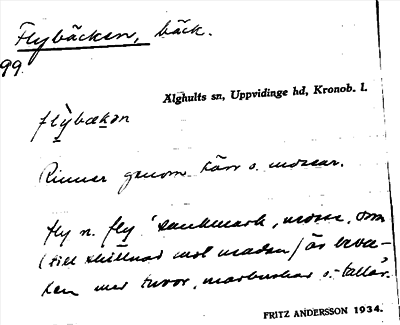 Flybäcken, bäck.
99.
Älghults sn, Uppvidinge hd, Kronob. l.
flỳbækən
Rinner genom kärr o. mossar.
fly n. fly 'sankmark, mosse, som
(till skillnad mot maden) är bevä-
ten med tuvor, martuskar o. tallar.
FRITZ ANDERSSON 1934.